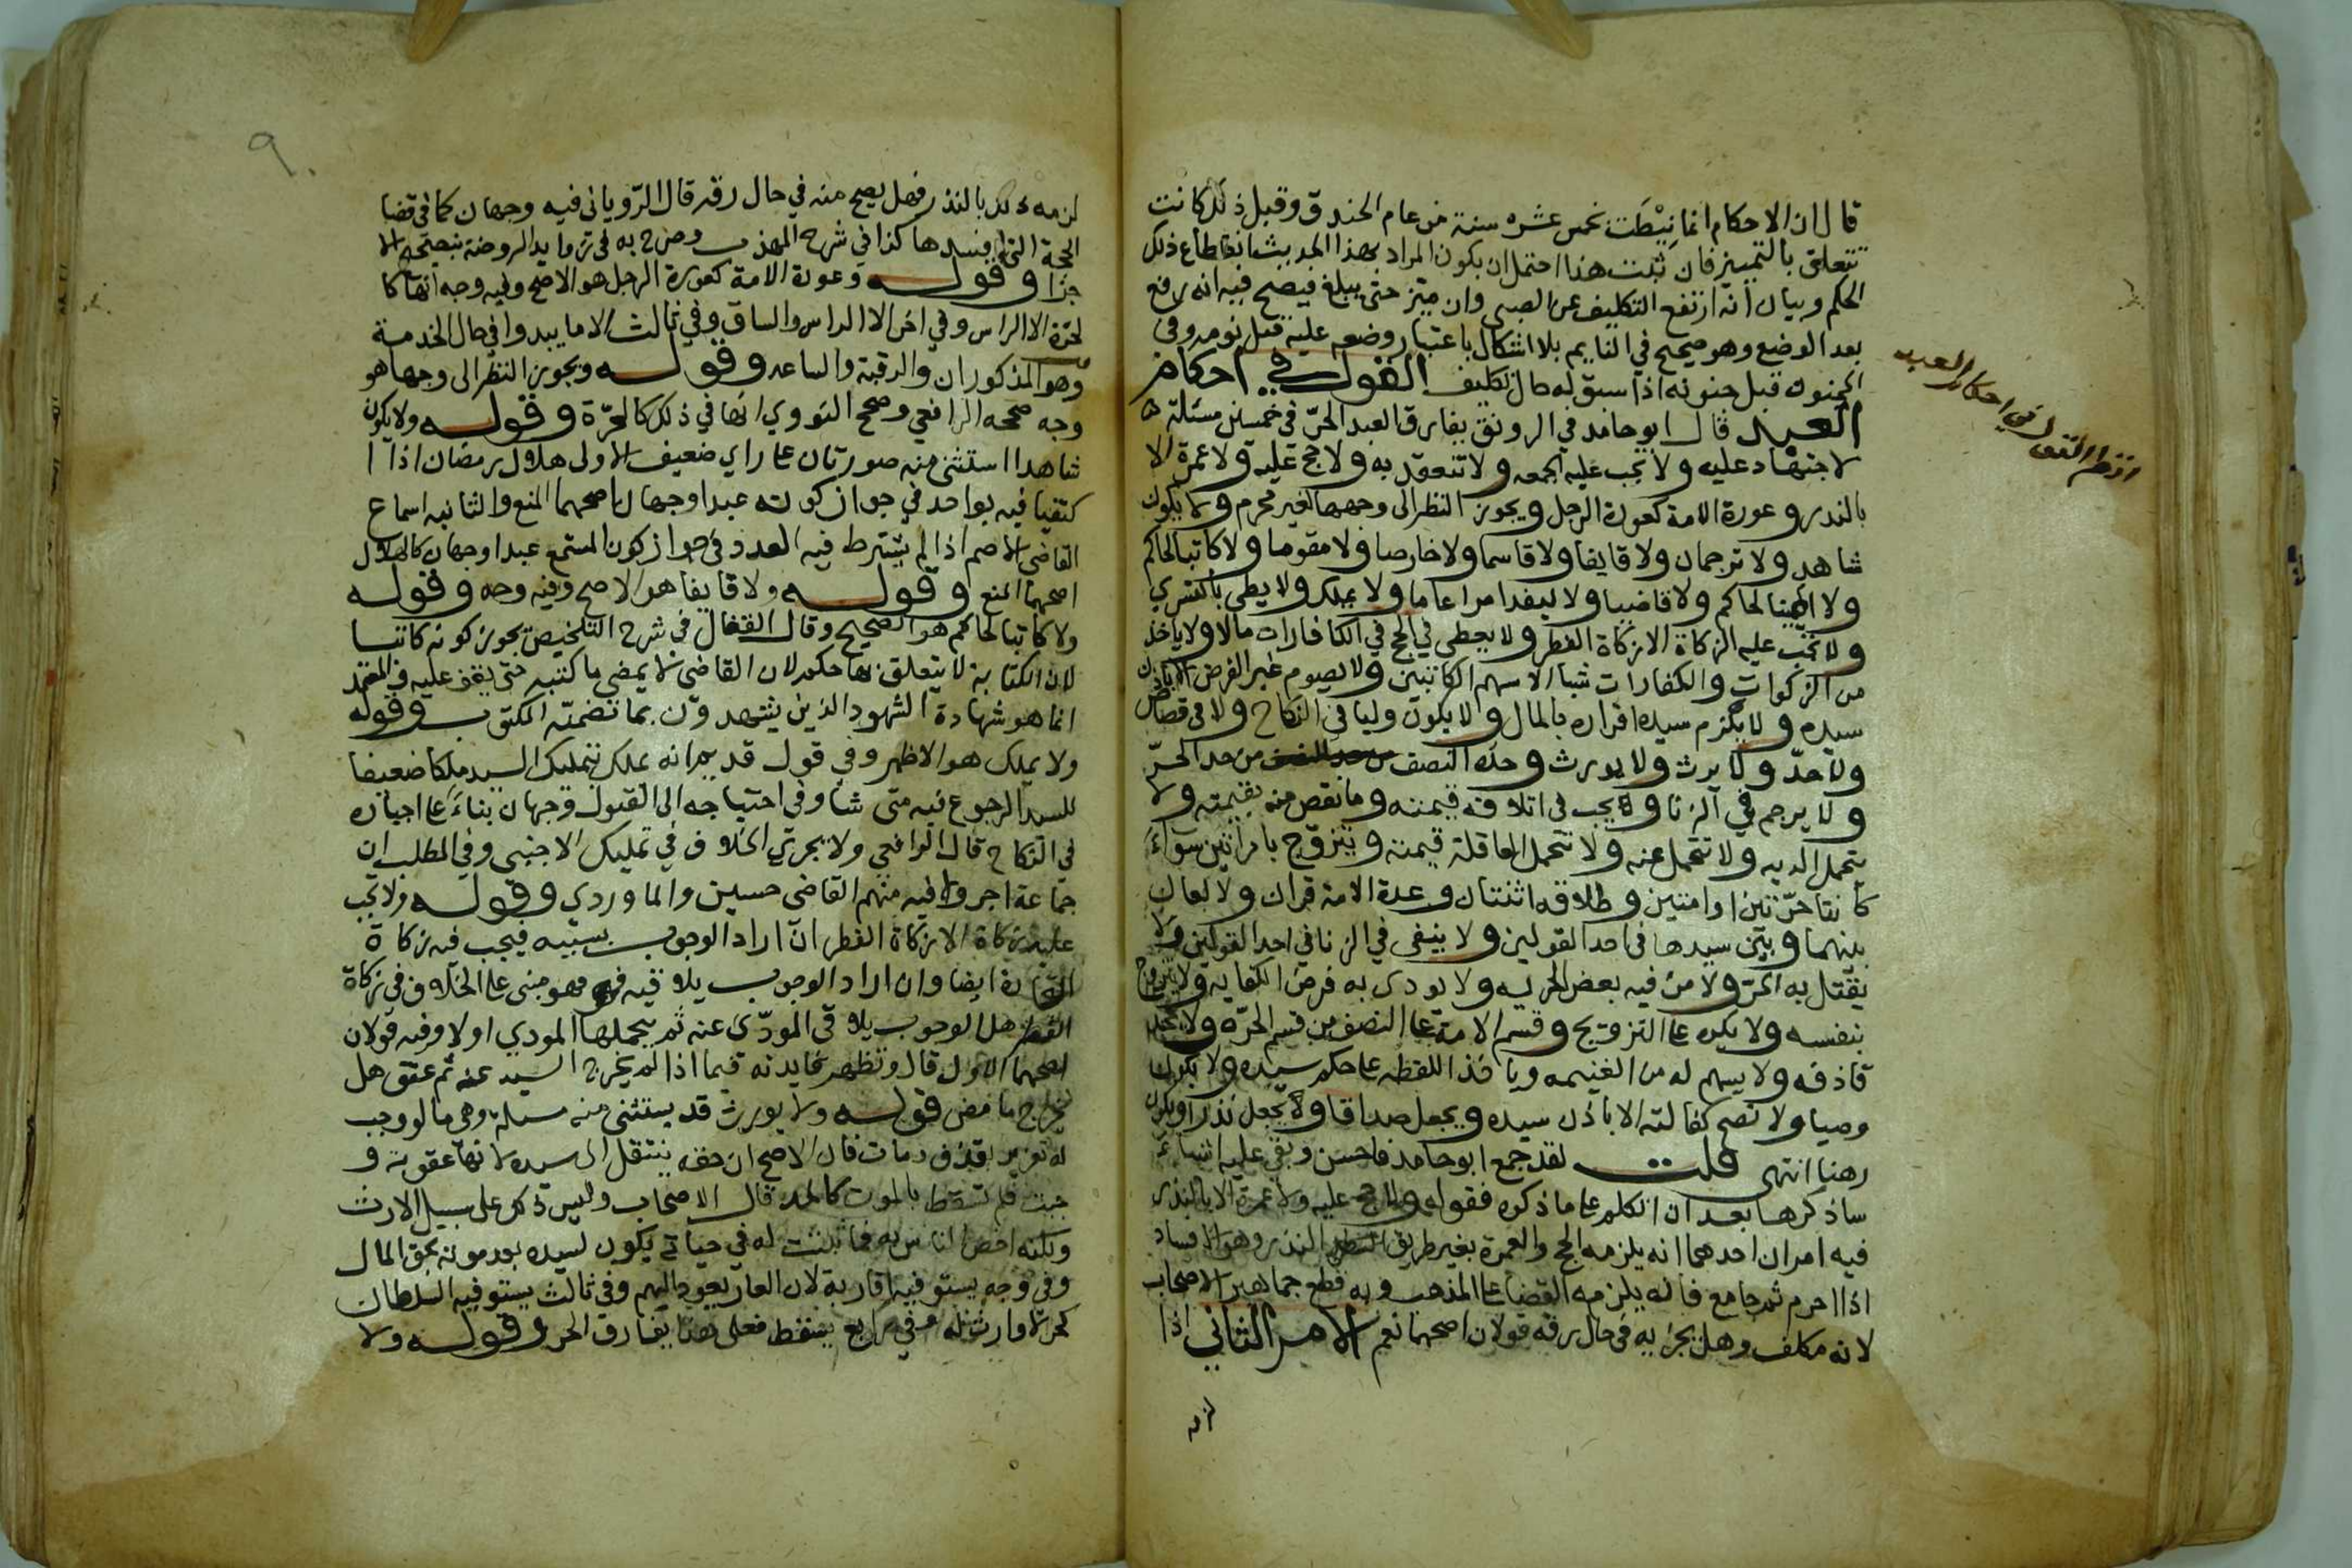 قال ان الاحكام انما نيطت بخمس عشره سنة من عام الخندق وقبل ذلك كانت
تتعلق بالتمييز فان ثبت هذا احتمل ان يكون المراد بهذا الحديث انقطاع ذلك
الحكم وبيان انه ارتفع التكليف عن الصبى وان ميز حتى يبلغ فيصح فيه انه رفع
بعد الوضع وهو صحيح في النايم بلا اشكال باعتبار وضعه عليه قبل نومه وفى
المجنون قبل جنونه اذا سبق له حال تكليف القول في احكام
العبد قال ابو حامد في الرونق يفارق العبد الحرّ فى خمسين مسئلة
لا جهاد عليه ولا تجب عليه الجمعه ولا تنعقد به ولا حج عليه ولا عمرة الا
بالندر وعورة الامة كعورة الرجل ويجوز النظر الى وجهها لغير محرم ولا يكون
شاهد ولا ترجمان ولا قايفا ولا قاسما ولا خارصا ولا مقوما ولا كاتبا لحاكم
ولا امينا لحاكم ولا قاضيا ولا ليفدا مرا عاما ولا يملك ولا يطى بالتسري
ولا تجب عليه الزكاة الا زكاة الفطر ولا يعطى في الحج في الكافارات مالا ولا ياخذ
من الزكوات والكفارات شيا الا سهم الكاتبين ولا يصوم غير الفرض الا باذن
سيده ولا يلزم سيده اقراره بالمال ولا يكون وليا في النكاح ولا فى قصاص
ولا حدّ ولا يرث ولا يورث وحده النصف من حد الحرّ
ولا يرجم في الزنا ولا يجب فى اتلافه قيمته وما نقص منه بقيمته ولا
يتحمل الديه ولا تتحمل عنه ولا تتحمل العاقلة قيمته ويتزوج بامراتين سواء
كانتا حرّتين او امتين وطلاقه اثنتان وعدة الامة قران ولا لعان
بينهما وبين سيدها فى احد القولين ولا ينفى في الزنا في احد القولين ولا
يقتل به الحرّ ولا من فيه بعض الحريه ولا يودى به فرض الكفايه ولا يتزوج
بنفسه ولا يكره على التزويج وقسم الامة على النصف من قسم الحرّه ولا يحد
قاذفه ولا يسهم له من الغنيمه وياخذ اللقطه على حكم سيده ولا يكون
وصيا ولا تصح كفالته الا باذن سيده ويجعل صداقا ولا يجعل نذرا ويكون
رهنا انتهى قلت لقد جمع ابو حامد فاحسن وبقى عليه اشياء
ساذكرها بعد ان اتكلم على ما ذكره فقوله ولا حج عليه ولا عمرة الا بالنذر
فيه امران احدهما انه يلزمه الحج والعمرة بغير طريق النذر وهو الافساد
اذا احرم ثم جامع فانه يلزمه القضا على المذهب وبه قطع جماهير الاصحاب
لانه مكلف وهل يجزيه فى حال رقه قولان اصحهما نعم الامر الثاني اذا
لزمه
انظر القول في احكام العبد
٩٠
لزمه ذلك بالنذر فهل يصح منه في حال رقه قال الرّوياني فيه وجهان كما فى قضا
الحجة التى افسدها كذا في شرح المهذب وصرح به فى زوايد الروضة بتصحيح الا
جزا وقوله وعورة الامة كعورة الرجل هو الاصح وفيه وجه انها كا
لحرّة الا الراس وفي اخر الا الراس والساق وفي ثالث الا ما يبدو في حال الخدمة
وهو المذكوران والرقبة والساعد وقوله ويجوز النظر الى وجهها هو
وجه صححه الرافعي وصحح النووي انها في ذلك كالحرّة وقوله ولا يكون
شاهدا استثنى منه صورتان على راي ضعيف الاولى هلال رمضان اذا ا
كتفيا فيه بواحد في جواز كونه عبدا وجهان اصحهما المنع والثانيه اسماع
القاضى الاصم اذا لم يشترط فيه العدد وفى جواز كون المستمع عبدا وجهان كالهلال
اصحهما المنع وقوله ولا قايفا هو الاصح وفيه وجه وقوله
ولا كاتبا لحاكم هو الصحيح وقال القفال في شرح التلخيص يجوز كونه كاتبا
لان الكتابة لا يتعلق بها حكم لان القاضى لا يمضى ما كتبه حتى يقف عليه والمعتمد
انما هو شهادة الشهود الذين يشهدون بما تضمنه المكتوب وقوله
ولا يملك هو الاظهر وفي قول قديم انه يملك بتمليك السيد ملكا ضعيفا
للسيد الرجوع فيه متى شا وفى احتياجه الى القبول وجهان بناء على اجباره
في النكاح قال الرافعي ولا يجرى الخلاف في تمليك الاجنبى وفي المطلب ان
جماعة اجروه فيه منهم القاضى حسين والماوردي وقوله ولا تجب
عليه زكاة الا زكاة الفطر ان اراد الوجوب بسببه فيجب فيه زكاة
التجارة ايضا وان اراد الوجوب يلاقيه فهو مبنى على الخلاف فى زكاة
الفطر هل الوجوب يلاقى المودّى عنه ثم يتحملها المودي اولا وفيه قولان
اصحهما الاول قال وتظهر فايدته فيما اذا لم يخرج السيد عنه ثم عتق هل
يخرج ما مضى قوله ولا يورث قد يستثنى منه مسلة وهى ما لو وجب
له تعزير لقذف ومات فان الاصح ان حقه ينتقل الى سيده لانها عقوبة و
جبت فلم تسقط بالموت كالحد قال الاصحاب وليس ذلك على سبيل الارث
ولكنه اخص الناس به فما ثبت له في حياته يكون لسيده بعد موته بحق المال
وفى وجه يستوفيها اقاربه لان العار يعود اليهم وفى ثالث يستوفيه السلطان
كحر لا وارث له وفي رابع يسقط فعلى هذا يفارق الحر وقوله ولا